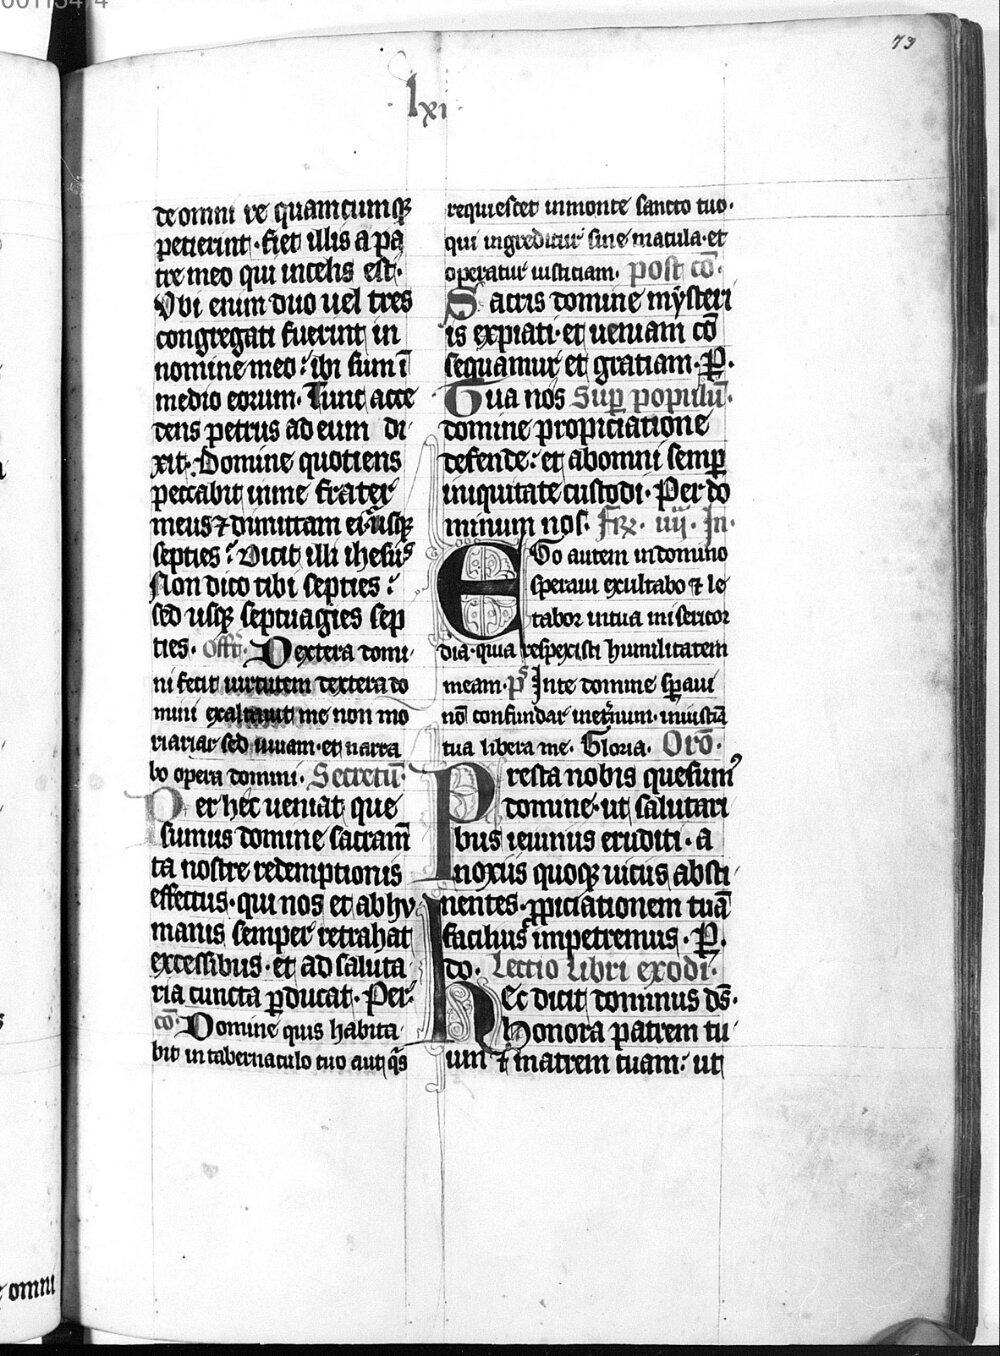 00113474
73
lxi
de omni re quamcumqꝫ
petierint · fiet illis a pa
tre meo qui in celis est ·
Vbi enim duo uel tres
congregati fuerint in
nomine meo : ibi sum ī
medio eorum · Tunc acce
dens petrus ad eum di
xit · Domine quotiens
peccabit in me frater
meus ⁊ dimittam ei · usqꝫ
septies ? Dicit illi ihesus
Non dico tibi septies :
sed usqꝫ septuagies sep
ties · Offr̄ · Dextera domi
ni fecit uirtutem dextera do
mini exaltauit me non mo
riar sed uiuam · et narra
bo opera domini · Secretū ·
Per hec ueniat que
sumus domine sacram̄
ta nostre redemptionis
effectus · qui nos et ab hu
manis semper retrahat
excessibus · et ad saluta
ria cuncta ꝑducat · Per ·
cō · Domine quis habita
bit in tabernaculo tuo aut qͥs
requiescet in monte sancto tuo ·
qui ingreditur sine macula · et
operatur iusticiam · post cō ·
Sacris domine mẏsteri
is expiati · et ueniam cō
sequamur et gratiam · P̲ ·
Tua nos Suꝑ populū ·
domine propiciatione
defende : et ab omni semꝑ
iniquitate custodi · Per do
minum nos · Fr̄ · iiij · In ·
Ego autem in domino
speraui exultabo ⁊ le
tabor in tua misericor
dia · quia respexisti humilitatem
meam · p̄s In te domine sꝑaui
nō confundar in et̄num · in iusticia
tua libera me · Gloria · Orō ·
Presta nobis quesumꝰ
domine · ut salutari
bus ieiuniis eruditi · a
noxiis quoqꝫ uiciis absti
nentes · ꝓpiciationem tuā
facilius impetremus · P̲ ·
do · Lectio libri exodi ·
Hec dicit dominus ds̄ ·
honora patrem tu
um ⁊ matrem tuam : ut
omni